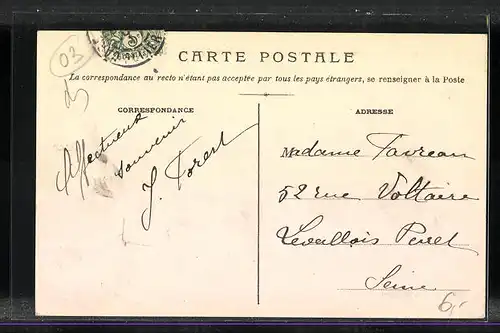 03
CARTE POSTALE
La correspondance au recto n'étant pas acceptée par tous les pays étrangers, se renseigner à la Poste
CORRESPONDANCE
Affectueux
souvenir
J. Forest
ADRESSE
Madame Favreau
52 rue Voltaire
Levallois Perret
Seine
6,-